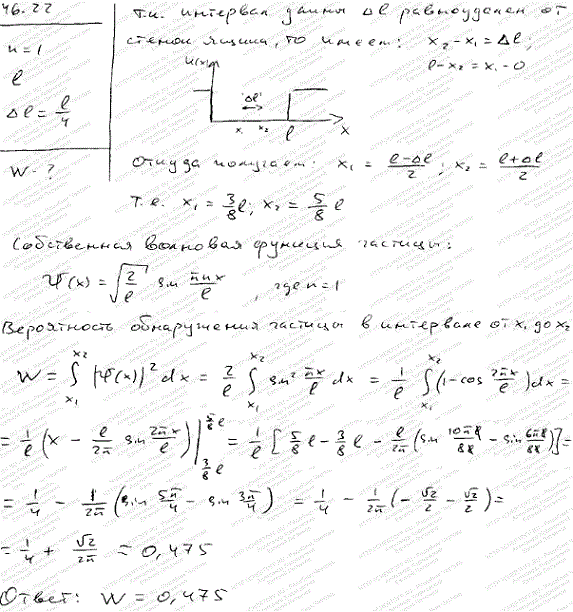 46.22
n = 1
l
Δl = l/4
W - ?
т.к. интервал длины Δl равноудален от
стенок ящика, то имеем: x₂ - x₁ = Δl;
l - x₂ = x₁ - 0
U(x)
Δl
x₁ x₂ l x
Откуда получаем: x₁ = (l-Δl)/2; x₂ = (l+Δl)/2
т.е. x₁ = 3/8 l; x₂ = 5/8 l
Собственная волновая функция частицы:
Ψ(x) = √(2/l) sin (πnx/l), где n = 1
Вероятность обнаружения частицы в интервале от x₁ до x₂
W = ∫_{x₁}^{x₂} |Ψ(x)|² dx = 2/l ∫_{x₁}^{x₂} sin² (πx/l) dx = 1/l ∫_{x₁}^{x₂} (1 - cos (2πx/l)) dx =
= 1/l (x - l/2π sin (2πx/l)) |_{3/8 l}^{5/8 l} = 1/l [5/8 l - 3/8 l - l/2π (sin (10πl/8l) - sin (6πl/8l))] =
= 1/4 - 1/2π (sin 5π/4 - sin 3π/4) = 1/4 - 1/2π (- √2/2 - √2/2) =
= 1/4 + √2/2π = 0,475
Ответ: W = 0,475